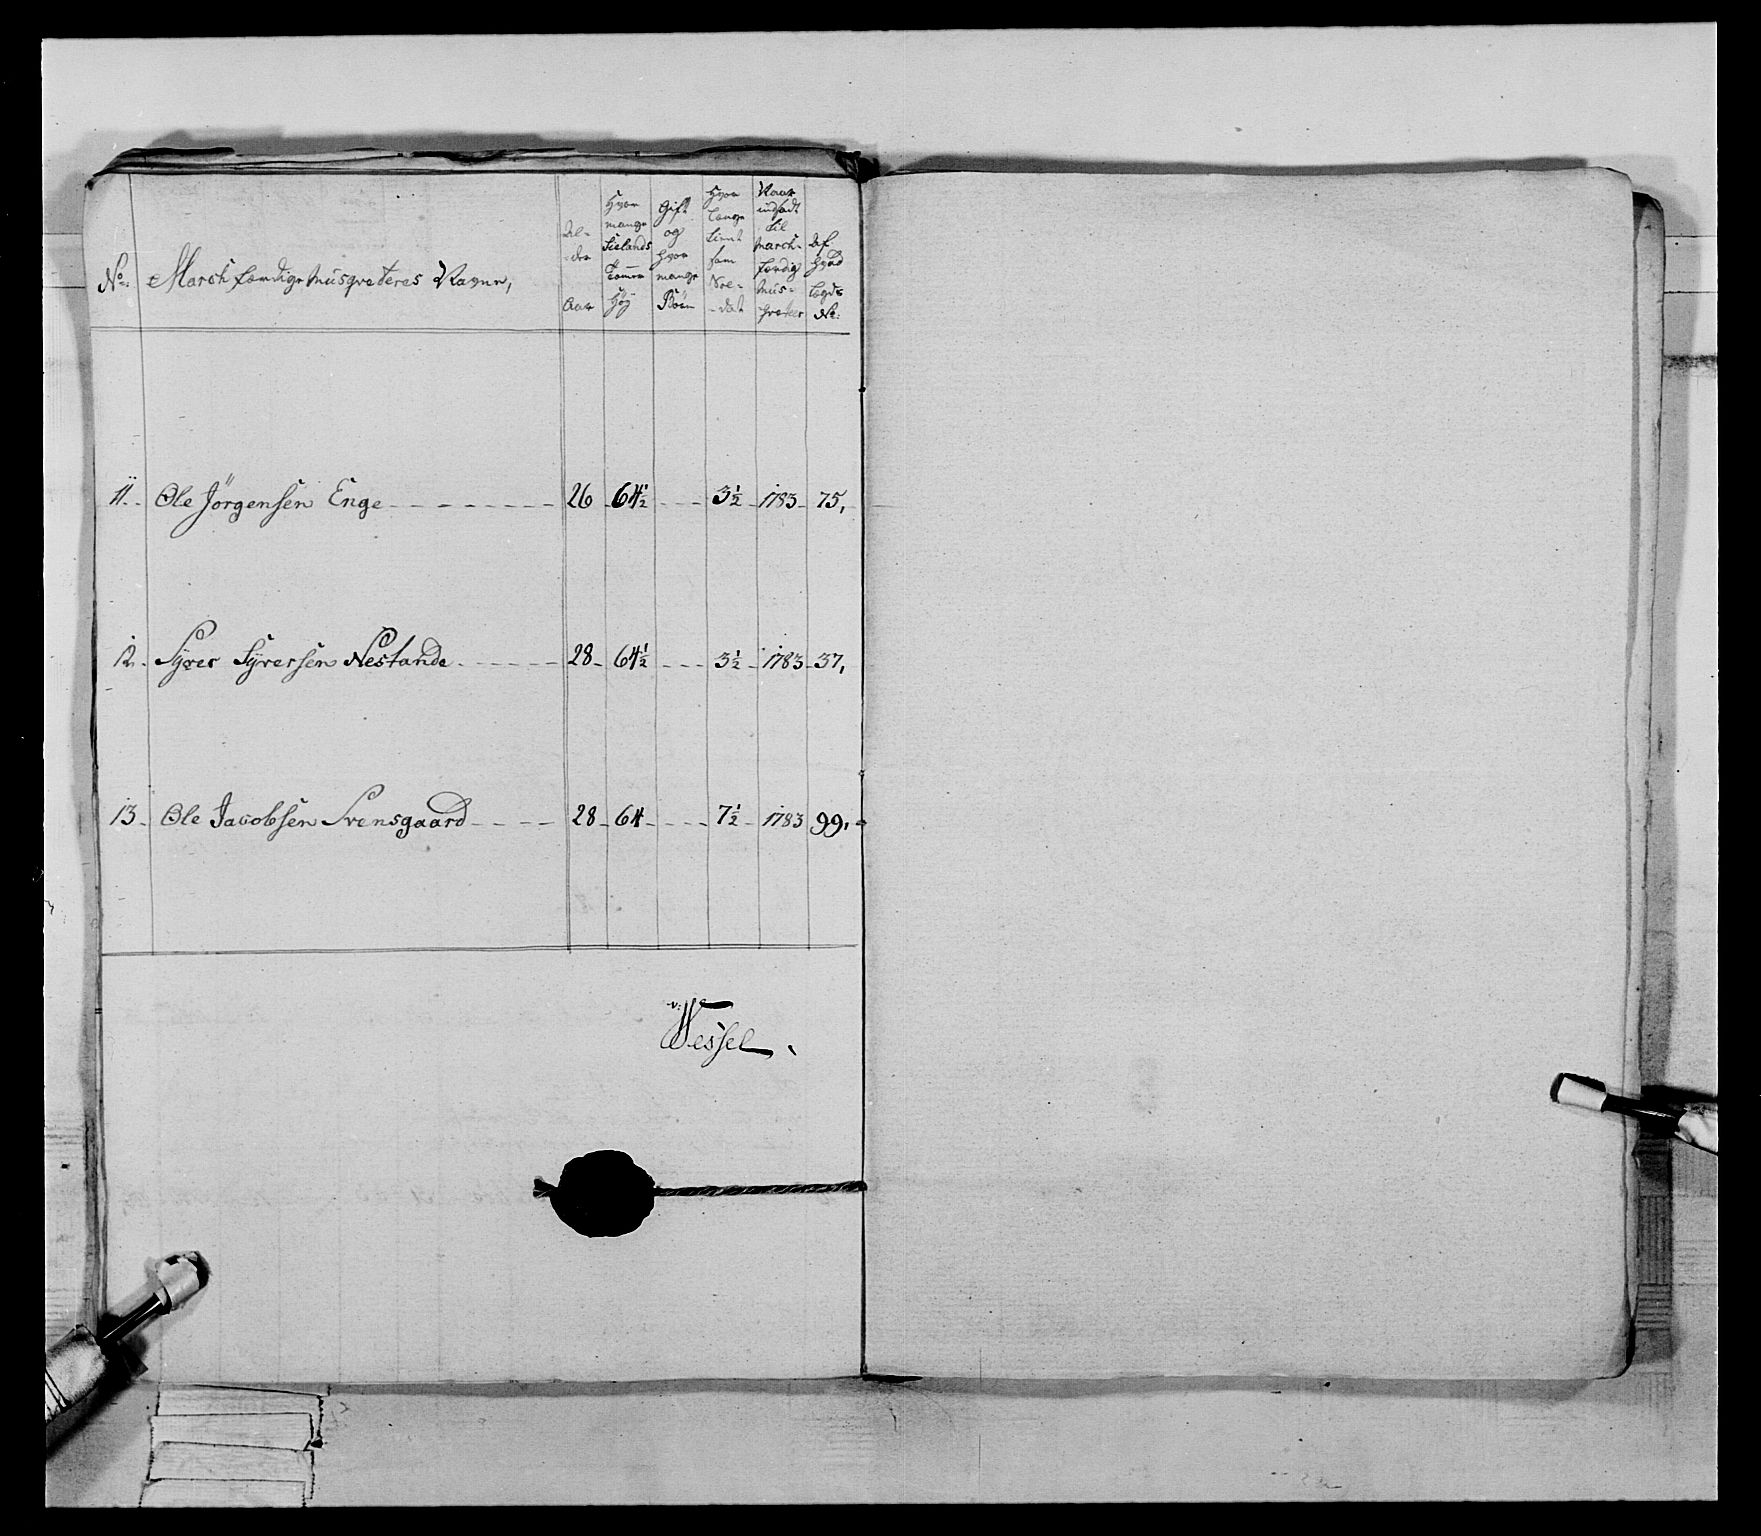 No: March færdige Musqveteres Navne,
Al-
-der
Aar
Hvor
mange
Sielands
Tommer
Høy
Gift
og
hvor
mange
Börn
Hvor
længe
tient
som
Sol-
-dat
Naar
indsadt
til
March-
færdig
Mus-
qveteer
Af
hvad
Lægds
No:
11. Ole Jörgensen Enge 26 64½ 3½ 1783 75,
12. Syver Syversen Nestande 28 64½ 3½ 1783 37,
13. Ole Jacobsen Svensgaard 28 64 7½ 1783 99,
v: Wessel.